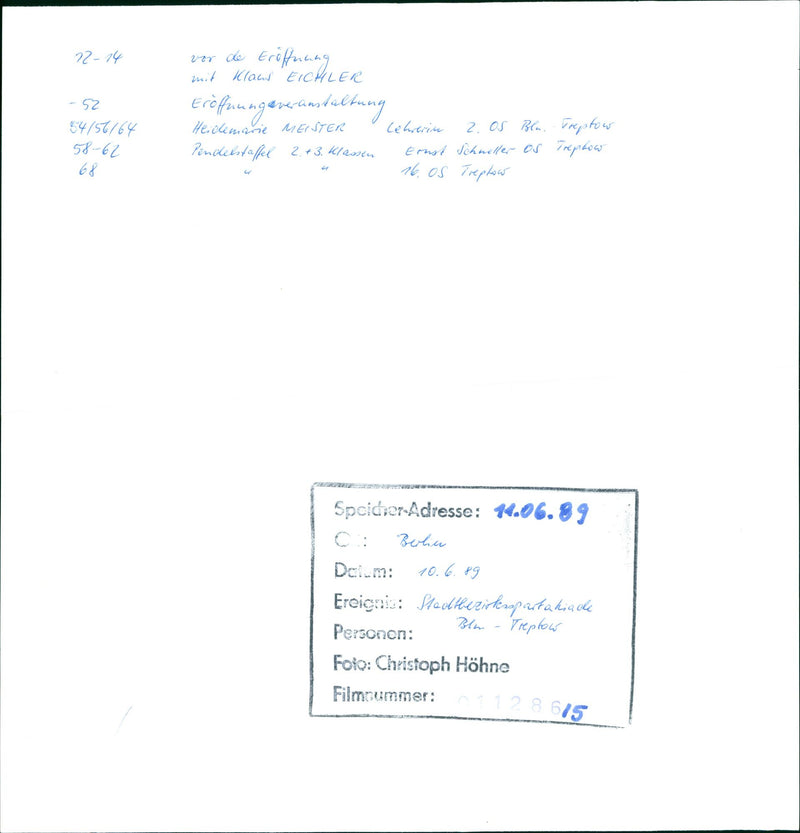 12-14 vor de Eröffnung
mit Klaus EICHLER
- 52 Eröffnungsveranstaltung
54/56/64 Heidemarie MEISTER Lehrerin 2. OS Bln. Treptow
58-62 Pendelstaffel 2.+3. Klassen Ernst Schneller OS Treptow
68 " " 16. OS Treptow
Speicher-Adresse: 11.06.89
Ort: Berlin
Datum: 10.6.89
Ereignis: Stadtbezirksspartakiade
Bln - Treptow
Personen:
Foto: Christoph Höhne
Filmnummer: 011286/5